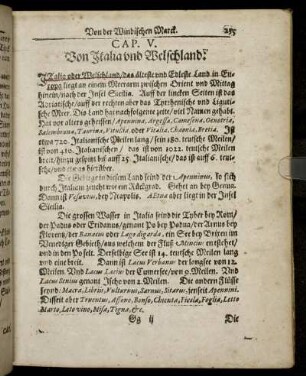 Von der Windischen Marck. 235
CAP. V.
Von Italia vnd Welschland.
Italia oder Welschland / das älteste vnd Edleste Land in Eu-
ropa ligt an einem Meerarm zwischen Orient vnd Mittag
hinein / nach der Insel Sicilia. Auff der lincken Seiten ist das
Adriatische / auff der rechten aber das Tyrrhenische vnd Ligusti-
sche Meer. Diß Land hat nachfolgente zeite / viel Namen gehabt.
Dan vor alters geheissen / Apenina, Argessa, Camesena, Oenotria,
Saturnia, Taurina, Vitulia oder Vitalia, Chaonia, Bretia. Ist
etwa 720. Italiänische Meilen lang / sein 180. teutsche Meilen /
ist auch 1020. Italiänischen / das ist von 1022. teutschen Meilen
breit / hinzu gehents biß auff 25 Italiänische / das ist auff 6. teut-
sche / vnd nie es hierüber.
Die Gebürge in diesem Land seind der Apenninus, so sich
durch Italiam zeucht wie ein Rückgrad. Gehet an bey Genua.
Dann ist Vesuvius, bey Neapolis. AEtna aber liegt in der Insel
Sicilia.
Die grossen Wasser in Italia seind die Tyber bey Rom /
der Padus oder Eridanus / genant Po bey Padua / der Arnus bey
Florentz / der Benacus oder Lago di garda, ein See bey Bitern im
Venediger Gebiet / aus welchem der Fluß Mincius entstehet / vnd
in den Po felt. Derselbige See ist 14. teutsche Meilen lang
vnd drei breit. Dann ist Lacus Verbanus der langsee von 12.
Meilen. Vnd Lacus Larius der Comersee / von 9. Meilen. Vnd
Lacus Sevinus genant Ischo von 2. Meilen. Die andere Flüsse
seynd / Macra, Libris, Vulturnus, Sarnus, Silarus, jenseit Apennini.
Disseit aber Truentus, Assone, Banso, Checuta, Ficola, Foglia, Letto
Marto, Lato vino, Nisa, Tigna, &c.
Gg ij Die